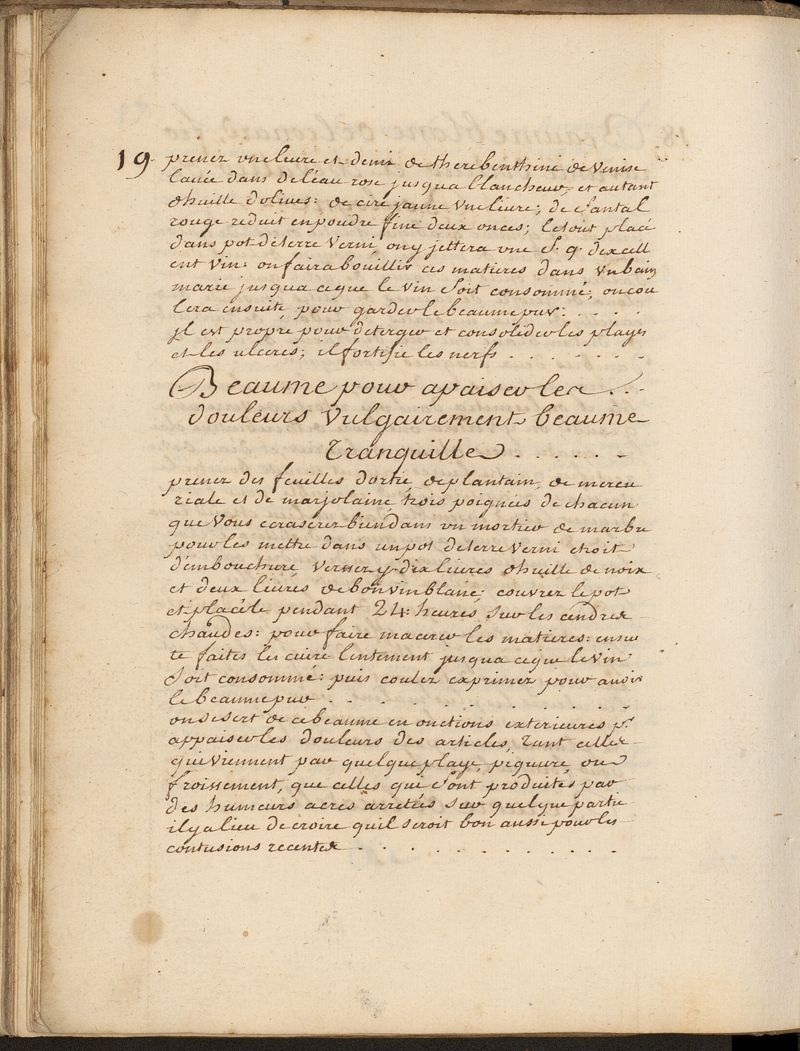 19. prenez une livre et demie de therebenthine de venise
lavée dans de l'eau rose jusqua blancheur, et autant
d'huille d'olives: de cire jaune une livre; de santal
rouge reduit en poudre fine deux onces; le tout placé
dans pot de terre verni, on y jettera une S. q. d'excell
ent vin: on faira bouillir ces matieres dans un bain
marie jusqua ceque le vin soit consommé; on cou
lera ensuite pour garder le beaume pur: . . . .
jl est propre pour deterger et consolider les playes
et les ulceres; il fortifie les nerfs . . . . . . .
Beaume pour apaiser les . . .
douleurs vulgairement beaume
Tranquille . . . . . .
prenez des feuilles d'ortie, de plantain, de mercu
riale et de marjolaine, trois poignées de chacun
que vous ecraserez bien dans un mortier de marbre
pour les mettre dans un pot de terre verni etroit
d'embouchure, versez y dix livres d'huille de noix
et deux livres de bon vin blanc; couvrez le pot
et placéle pendant 24. heures sur les cendres
chaudes: pour faire macerer les matieres: ensui
te faites les cuire lentement jusqua ceque le vin
soit consommé: puis coulez exprimez pour avoir
le beaume pur . . . . . . . . . . .
on se sert de ce beaume en onctions exterieures pr.
appaiser les douleurs des articles, tant celles
qui viennent par quelque playe, piqure, ou
froissement, que celles qui sont produites par
des humeurs acres arretées sur quelque partie
il y a lieu de croire quil seroit bon aussi pour les
contusions recentes . . . . . . . . . . .